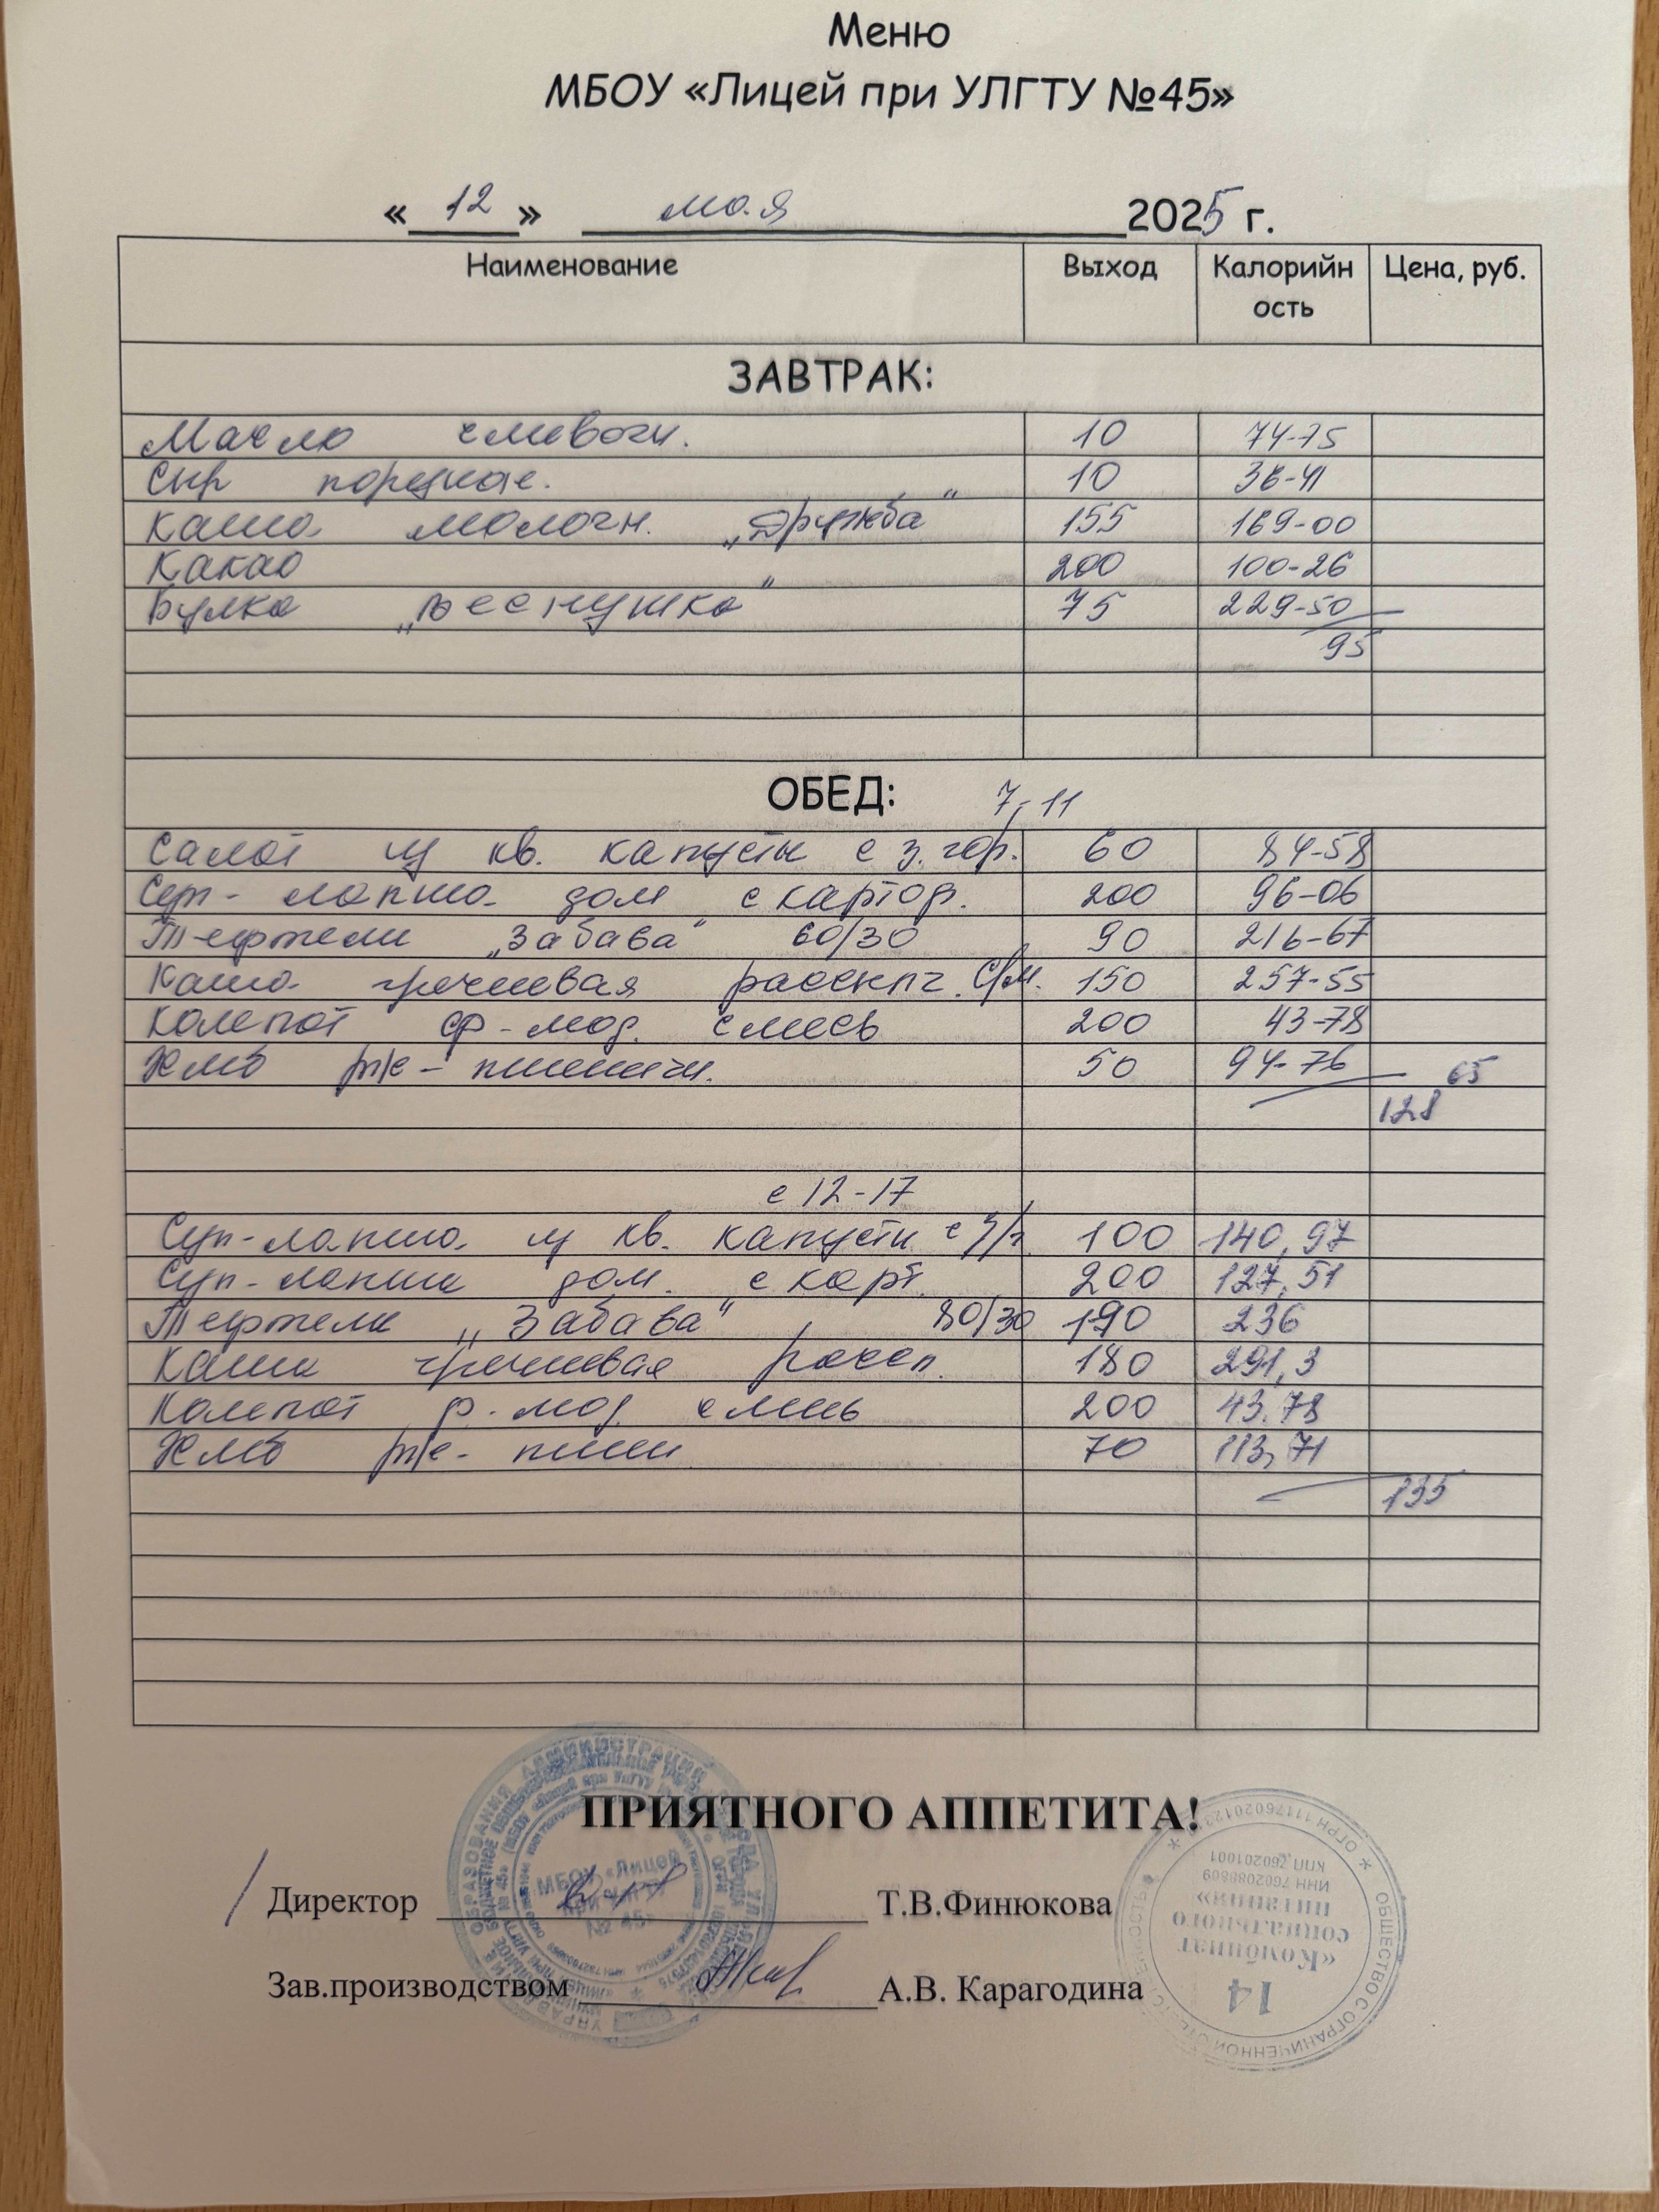 Меню
МБОУ «Лицей при УЛГТУ №45»
«12» мая 2025 г.
Наименование Выход Калорийность Цена, руб.
ЗАВТРАК:
Масло сливочн. 10 74-75
Сыр порцион. 10 36-41
Каша молочн. „Дружба" 155 169-00
Какао 200 100-26
Булка „Веснушка" 75 229-50
95
ОБЕД: 7-11
Салат из кв. капусты с з. гор. 60 84-58
Суп-лапша дом с картоф. 200 96-06
Тефтели „Забава" 60/30 90 216-67
Каша гречневая рассыпч. с/м. 150 257-55
Компот ср-мод. смесь 200 43-78
Хлеб рж-пшеничн. 50 94-76
128 65
с 12-17
Суп-лапша из кв. капусты с з/г 100 140,97
Суп-лапша дом. с карт. 200 127,51
Тефтели „Забава" 80/30 190 236
Каша гречневая рассп. 180 291,3
Компот ф. мод. смесь 200 43.78
Хлеб рж-пшен 70 113,71
135
ПРИЯТНОГО АППЕТИТА!
Директор Т.В.Финюкова
Зав.производством А.В. Карагодина
МБОУ «Лицей при УлГТУ № 45»
ОБЩЕСТВО С ОГРАНИЧЕННОЙ ОТВЕТСТВЕННОСТЬЮ
14
«Комбинат
социального
питания»
ИНН 7602088809
КПП 760201001